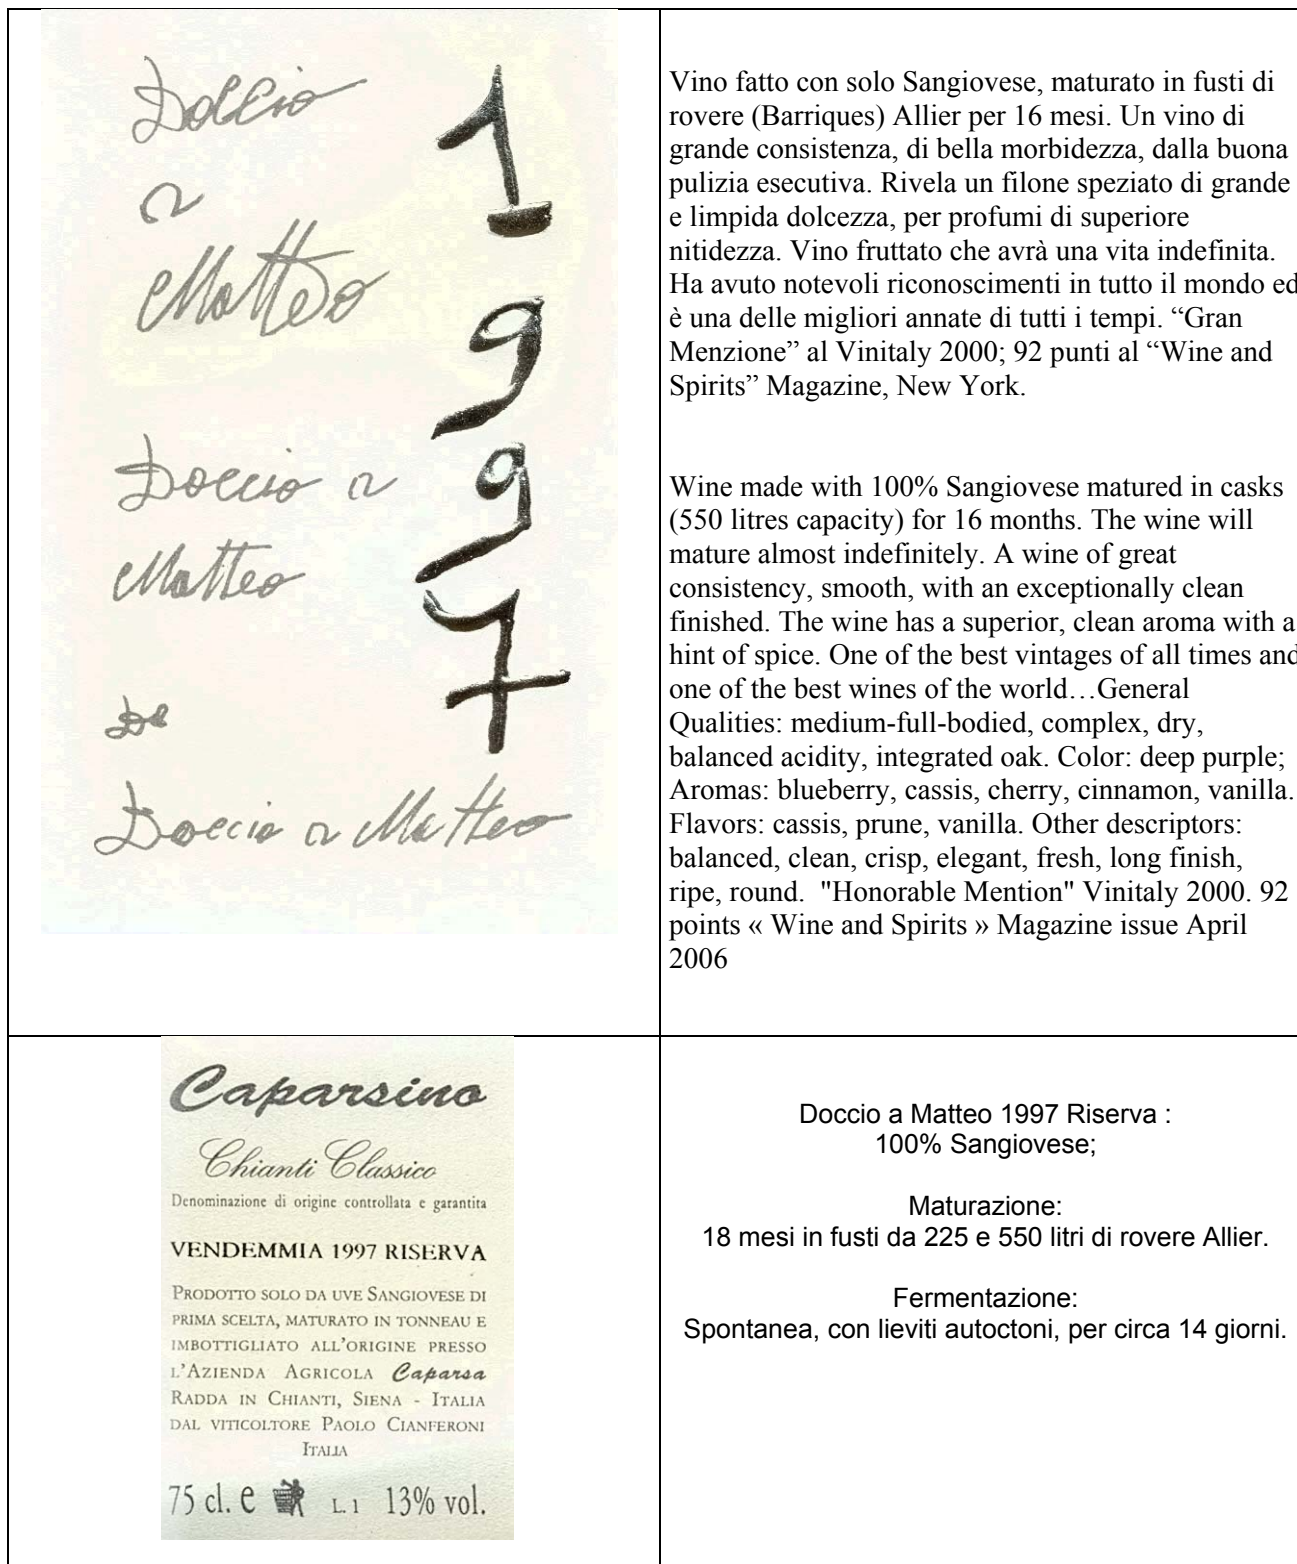 Doccio
a
Matteo
1997
Doccio a
Matteo
De
Doccio a Matteo
Vino fatto con solo Sangiovese, maturato in fusti di
rovere (Barriques) Allier per 16 mesi. Un vino di
grande consistenza, di bella morbidezza, dalla buona
pulizia esecutiva. Rivela un filone speziato di grande
e limpida dolcezza, per profumi di superiore
nitidezza. Vino fruttato che avrà una vita indefinita.
Ha avuto notevoli riconoscimenti in tutto il mondo ed
è una delle migliori annate di tutti i tempi. “Gran
Menzione” al Vinitaly 2000; 92 punti al “Wine and
Spirits” Magazine, New York.
Wine made with 100% Sangiovese matured in casks
(550 litres capacity) for 16 months. The wine will
mature almost indefinitely. A wine of great
consistency, smooth, with an exceptionally clean
finished. The wine has a superior, clean aroma with a
hint of spice. One of the best vintages of all times and
one of the best wines of the world…General
Qualities: medium-full-bodied, complex, dry,
balanced acidity, integrated oak. Color: deep purple;
Aromas: blueberry, cassis, cherry, cinnamon, vanilla.
Flavors: cassis, prune, vanilla. Other descriptors:
balanced, clean, crisp, elegant, fresh, long finish,
ripe, round.  "Honorable Mention" Vinitaly 2000. 92
points « Wine and Spirits » Magazine issue April
2006
Caparsino
Chianti Classico
Denominazione di origine controllata e garantita
VENDEMMIA 1997 RISERVA
PRODOTTO SOLO DA UVE SANGIOVESE DI
PRIMA SCELTA, MATURATO IN TONNEAU E
IMBOTTIGLIATO ALL'ORIGINE PRESSO
L'AZIENDA AGRICOLA Caparsa
RADDA IN CHIANTI, SIENA - ITALIA
DAL VITICOLTORE PAOLO CIANFERONI
ITALIA
75 cl. e L.1 13% vol.
Doccio a Matteo 1997 Riserva :
100% Sangiovese;
Maturazione:
18 mesi in fusti da 225 e 550 litri di rovere Allier.
Fermentazione:
Spontanea, con lieviti autoctoni, per circa 14 giorni.